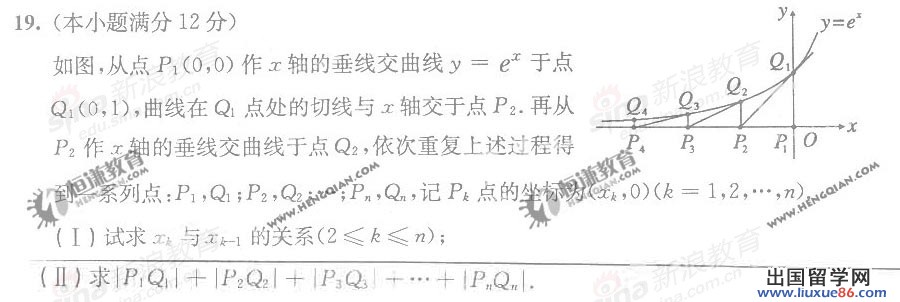 19. (本小题满分12分)
如图,从点 P₁(0,0) 作 x 轴的垂线交曲线 y = eˣ 于点
Q₁(0,1),曲线在 Q₁ 点处的切线与 x 轴交于点 P₂. 再从
P₂ 作 x 轴的垂线交曲线于点 Q₂,依次重复上述过程得
到一系列点:P₁,Q₁;P₂,Q₂;…;Pₙ,Qₙ,记 Pₖ 点的坐标为(xₖ,0)(k = 1,2,…,n).
(Ⅰ) 试求 xₖ 与 xₖ₋₁ 的关系(2 ≤ k ≤ n);
(Ⅱ) 求|P₁Q₁| + |P₂Q₂| + |P₃Q₃| + … + |PₙQₙ|.
y
y=eˣ
Q₁
Q₂
Q₃
Q₄
x
P₄ P₃ P₂ P₁ O
sina 新浪教育
edu.sina.com.cn
恒谦教育
WWW.HENGQIAN.COM
恒谦教育
WWW.HENGQIAN.COM
出国留学网
www.liuxue86.com